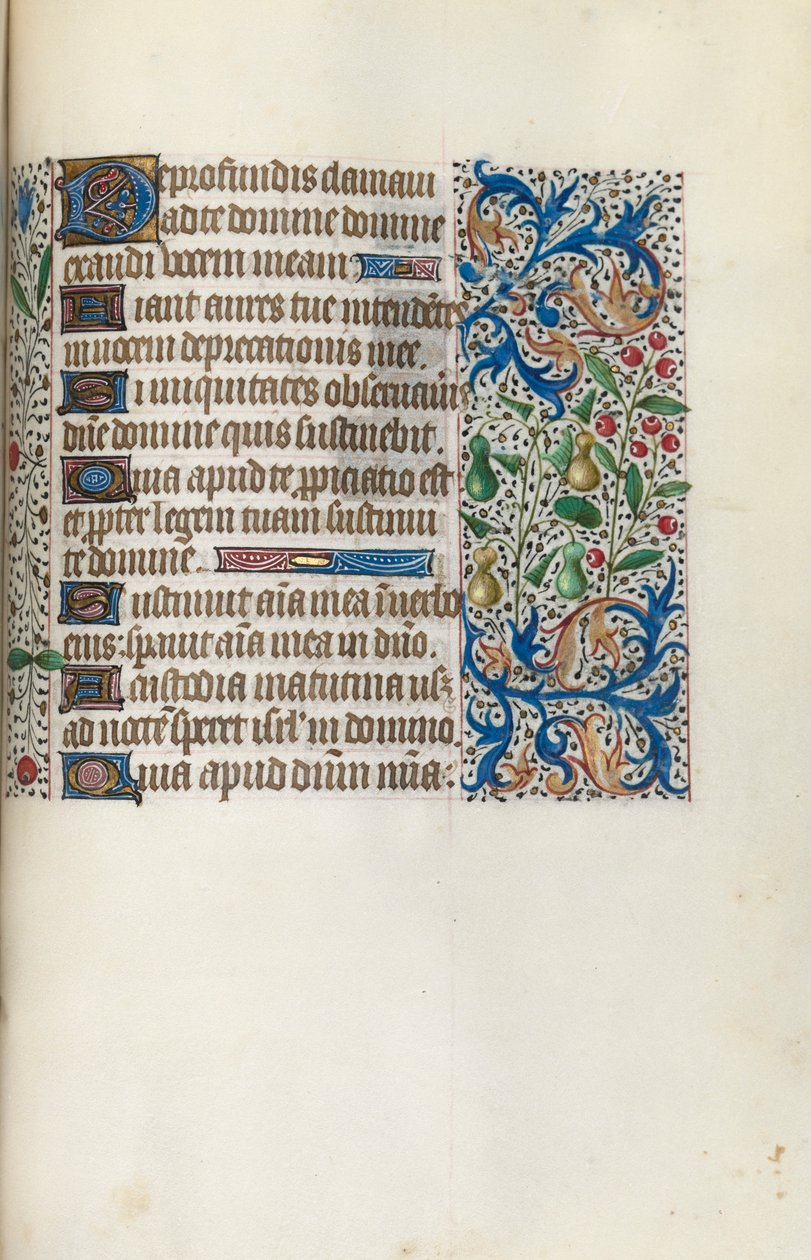 De profundis clamaui
ad te domine domine
exaudi vocem meam
Fiant aures tue intendẽtes
in uocem deprecationis mee.
Si iniquitates obseruaũis
dñe domine quis sustinebit.
Quia apud te ꝓpiciatio est
et ꝓpter legem tuam sustinui
te dominẽ.
Sustinuit aĩa mea ĩ uerbo
eius: sperauit aĩa mea in dño.
A custodia matutina usqꝫ
ad noctẽ speret isrl' in domino.
Quia apud dñum mĩa: